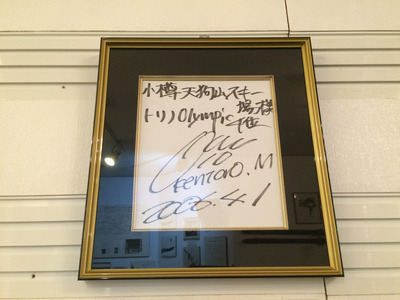 小樽天狗山スキー
場様
トリノOlympic
KENTARO.M
2006.4.1